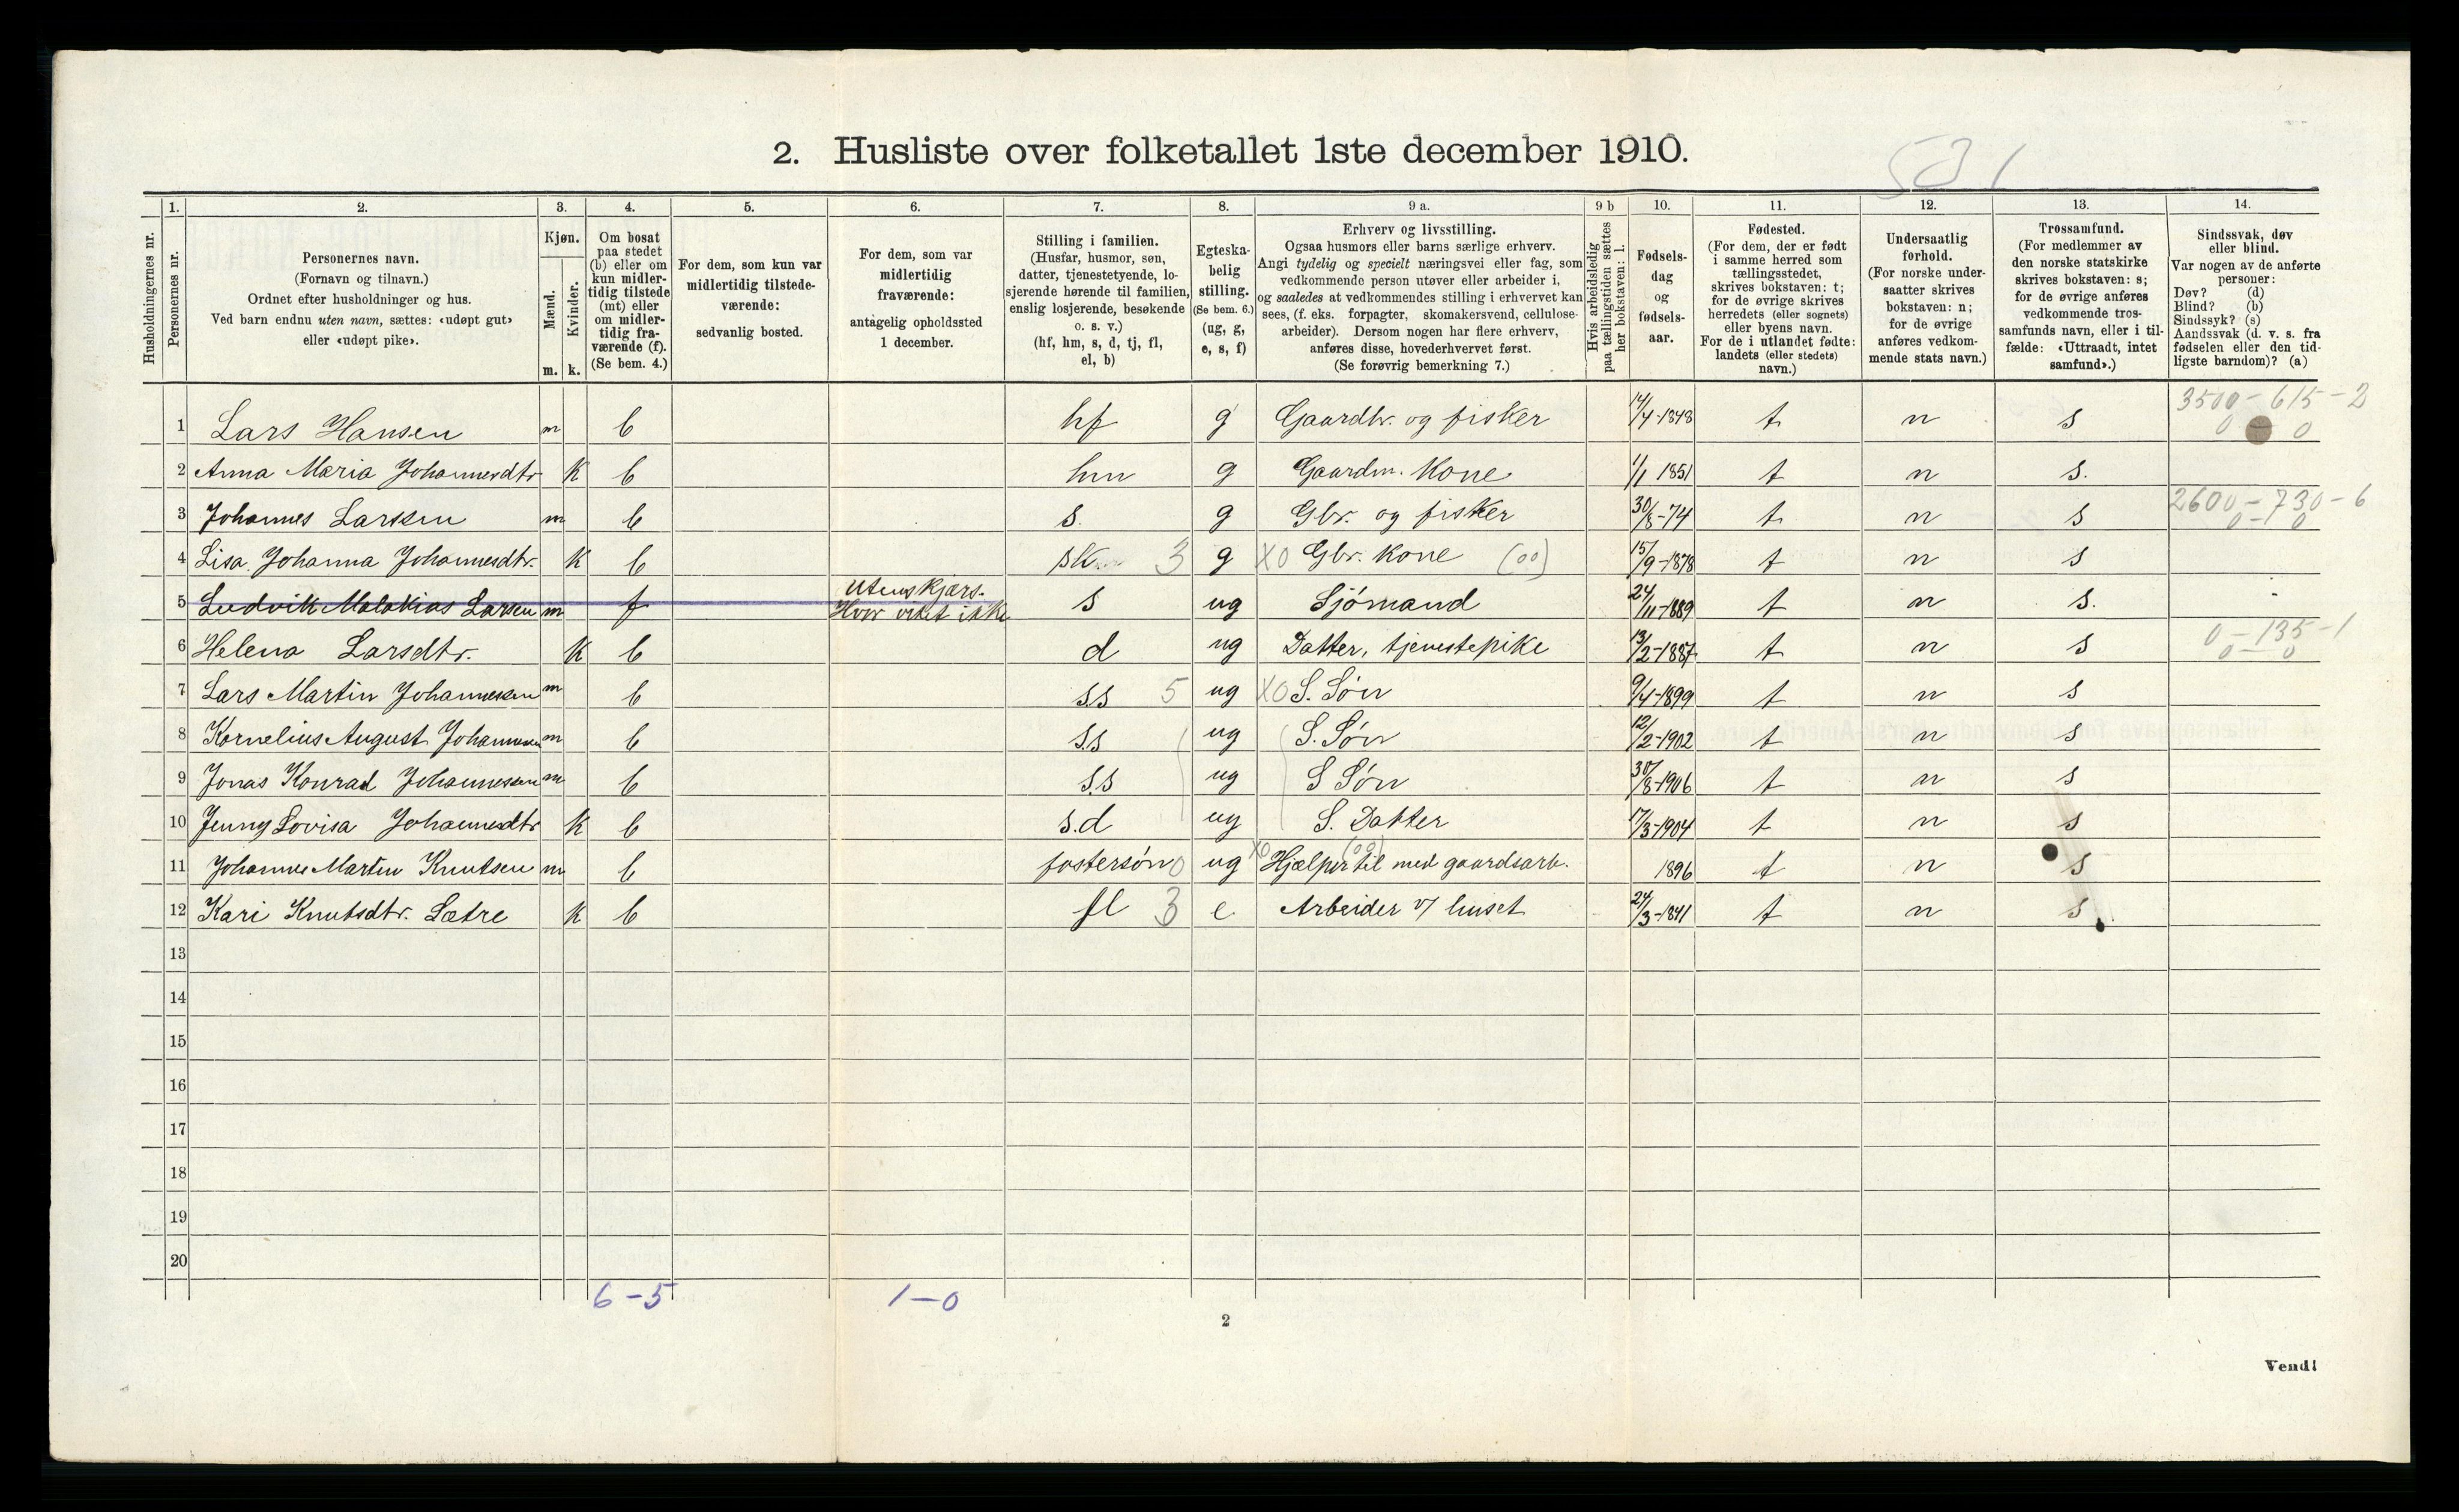 2. Husliste over folketallet 1ste december 1910.
1. 2. 3. 4. 5. 6. 7. 8. 9 a. 9 b 10. 11. 12. 13. 14.
Husholdningernes nr.
Personernes nr.
Personernes navn.
(Fornavn og tilnavn.)
Ordnet efter husholdninger og hus.
Ved barn endnu uten navn, sættes: «udøpt gut»
eller «udøpt pike».
Kjøn.
Mænd.
Kvinder.
m. k.
Om bosat
paa stedet
(b) eller om
kun midler-
tidig tilstede
(mt) eller
om midler-
tidig fra-
værende (f).
(Se bem. 4.)
For dem, som kun var
midlertidig tilstede-
værende:
sedvanlig bosted.
For dem, som var
midlertidig
fraværende:
antagelig opholdssted
1 december.
Stilling i familien.
(Husfar, husmor, søn,
datter, tjenestetyende, lo-
sjerende hørende til familien,
enslig losjerende, besøkende
o. s. v.)
(hf, hm, s, d, tj, fl,
el, b)
Egteska-
belig
stilling.
(Se bem. 6.)
(ug, g,
e, s, f)
Erhverv og livsstilling.
Ogsaa husmors eller barns særlige erhverv.
Angi tydelig og specielt næringsvei eller fag, som
vedkommende person utøver eller arbeider i,
og saaledes at vedkommendes stilling i erhvervet kan
sees, (f. eks. forpagter, skomakersvend, cellulose-
arbeider). Dersom nogen har flere erhverv,
anføres disse, hovederhvervet først.
(Se forøvrig bemerkning 7.)
Hvis arbeidsledig
paa tællingstiden sættes
her bokstaven: l.
Fødsels-
dag
og
fødsels-
aar.
Fødested.
(For dem, der er født
i samme herred som
tællingsstedet,
skrives bokstaven: t;
for de øvrige skrives
herredets (eller sognets)
eller byens navn.
For de i utlandet fødte:
landets (eller stedets)
navn.)
Undersaatlig
forhold.
(For norske under-
saatter skrives
bokstaven: n;
for de øvrige
anføres vedkom-
mende stats navn.)
Trossamfund.
(For medlemmer av
den norske statskirke
skrives bokstaven: s;
for de øvrige anføres
vedkommende tros-
samfunds navn, eller i til-
fælde: «Uttraadt, intet
samfund».)
Sindssvak, døv
eller blind.
Var nogen av de anførte
personer:
Døv? (d)
Blind? (b)
Sindssyk? (s)
Aandssvak (d. v. s. fra
fødselen eller den tid-
ligste barndom)? (a)
1 Lars Hansen m b hf g Gaardbr. og fisker 14/4-1848 t n s 3500-615-2
0 - 0
2 Anna Maria Johannesdtr K b hm g Gaardm. Kone 1/1 1851 t n s.
3 Johannes Larsen m b s. g Gbr. og fisker 30/8-74 t n s 2600-730-6
0 - 0
4 Lisa Johanna Johannesdtr. K b sK 3 g XO Gbr. Kone (00) 15/9-1878 t n s
5 Ludvik Malakias Larsen m f Utenskjærs. Hvor vites ikke s ug Sjömand 24/11-1889 t n s.
6 Helena Larsdtr. K b d ug Datter, tjenestepike 13/2-1887 t n s 0-135-1
0 - 0
7 Lars Martin Johannessen m b s.s 5 ug XO S. Sön 9/4-1899 t n s
8 Kornelius August Johannessen m b s.s ug S. Sön 12/2-1902 t n s
9 Jonas Konrad Johannessen m b s.s ug S Sön 30/8-1906 t n s
10 Jenny Lovisa Johannesdtr K b s.d ug S. Datter 17/3-1904 t n s
11 Johannes Martin Knutsen m b fostersön 0 ug XO Hjælper til med gaardsarb. (00) 1896 t n s
12 Kari Knutsdtr. Sætre K b fl 3 e Arbeider v/ huset 24/3-1841 t n s
13
14
15
16
17
18
19
20
6-5 1-0
2
Vend!